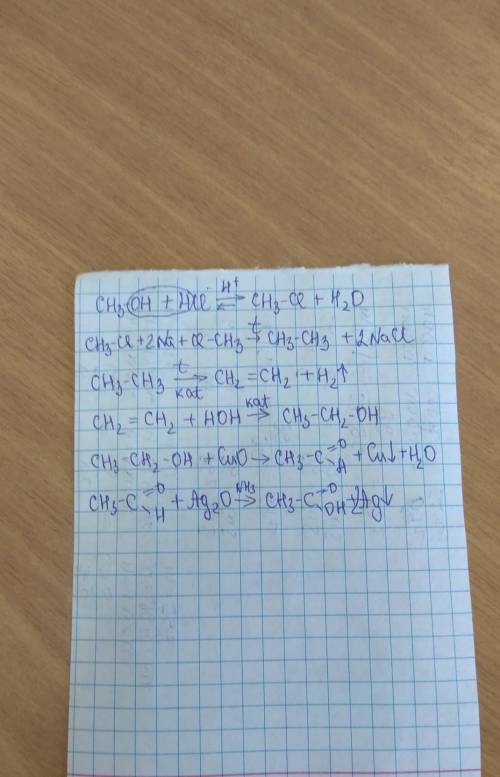 CH₃OH + HCl ⇌ (H⁺) CH₃-Cl + H₂O
CH₃-Cl + 2Na + Cl-CH₃ →(t) CH₃-CH₃ + 2NaCl
CH₃-CH₃ →(t, kat) CH₂=CH₂ + H₂↑
CH₂=CH₂ + HOH →(kat) CH₃-CH₂-OH
CH₃-CH₂-OH + CuO → CH₃-C(=O)-H + Cu↓ + H₂O
CH₃-C(=O)-H + Ag₂O →(NH₃) CH₃-C(=O)-OH + 2Ag↓